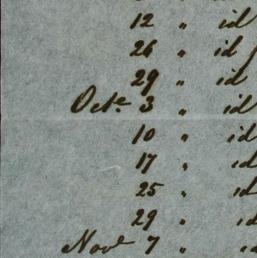 12 " id
26 " id
29 " id
Octe 3 " id
10 " id
17 " id
25 " id
29 " id
Nove 7 " id